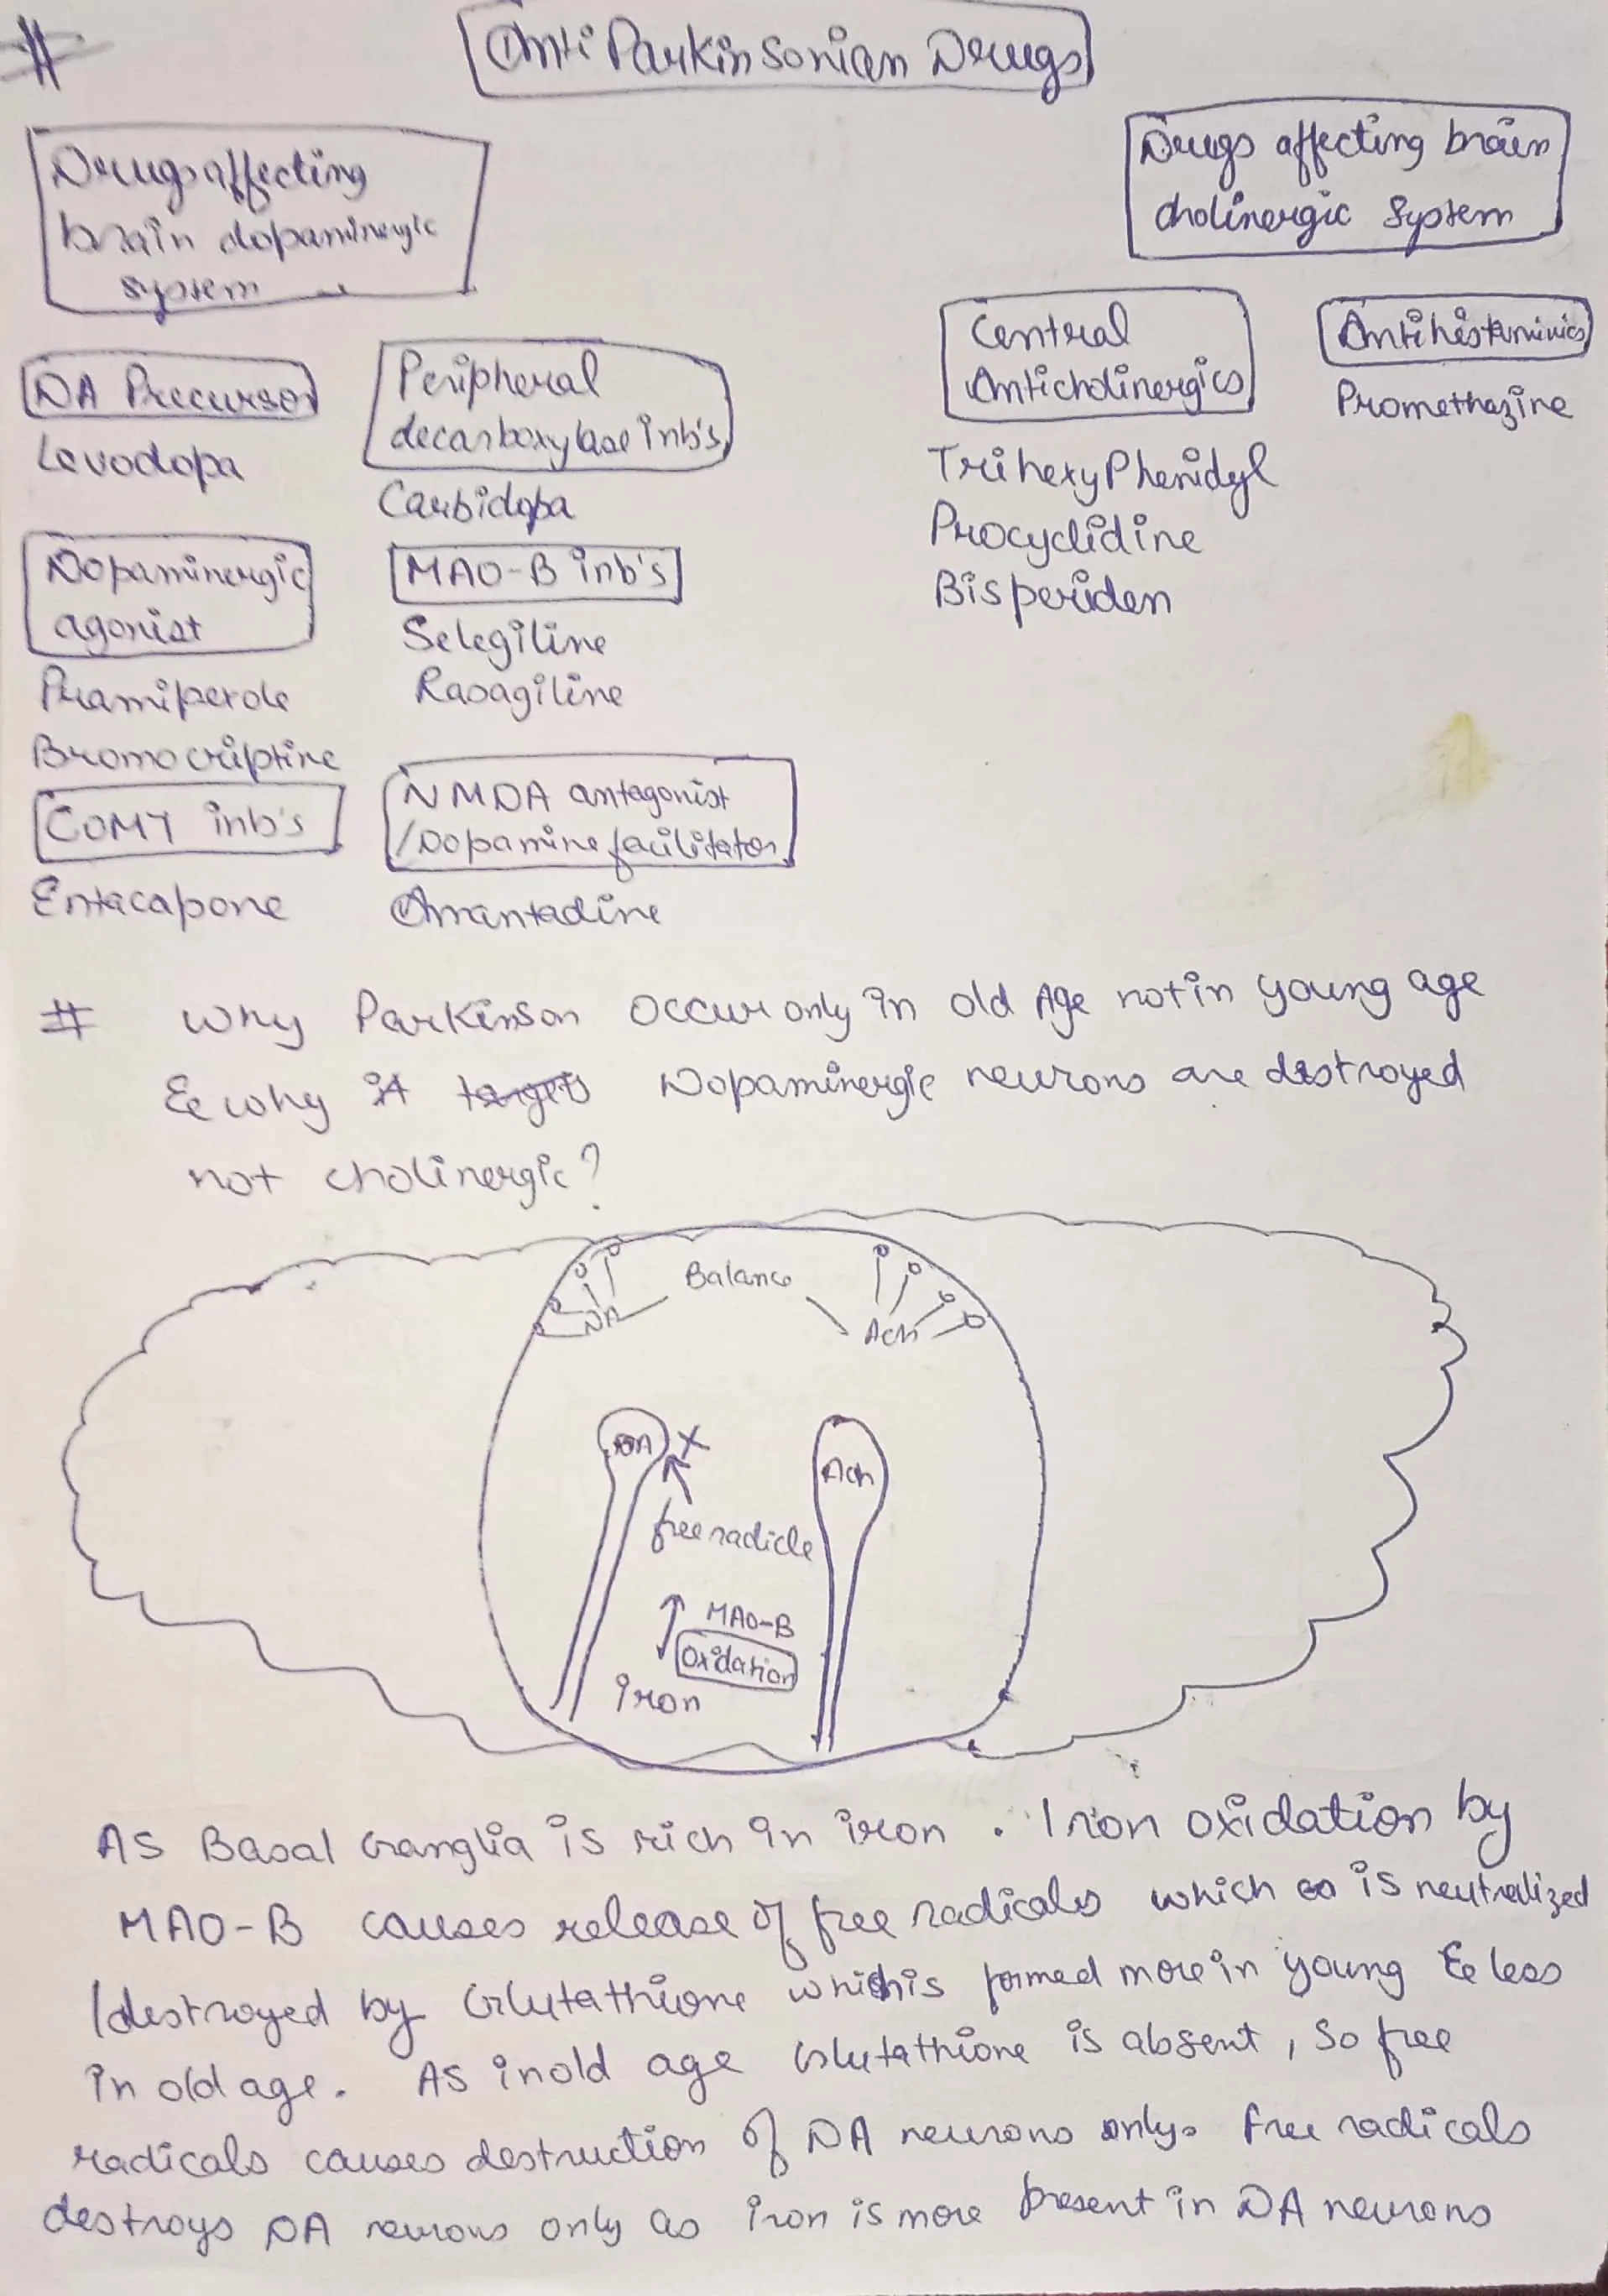 #
Anti Parkinsonian Drugs
Drugs affecting
brain dopaminergic
system
Drugs affecting brain
cholinergic System
DA Precursor
Levodopa
Peripheral
decarboxylase inb's
Carbidopa
Dopaminergic
agonist
Pramiperole
Bromocriptine
MAO-B inb's
Selegiline
Rasagiline
COMT inb's
Entacapone
NMDA antagonist
/Dopamine facilitator
Amantadine
Central
Anticholinergics
TrihexyPhenidyl
Procyclidine
Bisperiden
Antihistaminics
Promethazine
# Why Parkinson occur only in old Age not in young age
& why it targets Dopaminergic neurons are destroyed
not cholinergic?
Balance
DA
Ach
DA X
Ach
free radicle
MAO-B
Oxidation
iron
As Basal Ganglia is rich in iron. Iron oxidation by
MAO-B causes release of free radicals which is neutralized
/destroyed by Glutathione which is formed more in young & less
in old age. As in old age Glutathione is absent, So free
radicals causes destruction of DA neurons only. Free radicals
destroys DA neurons only as iron is more present in DA neurons